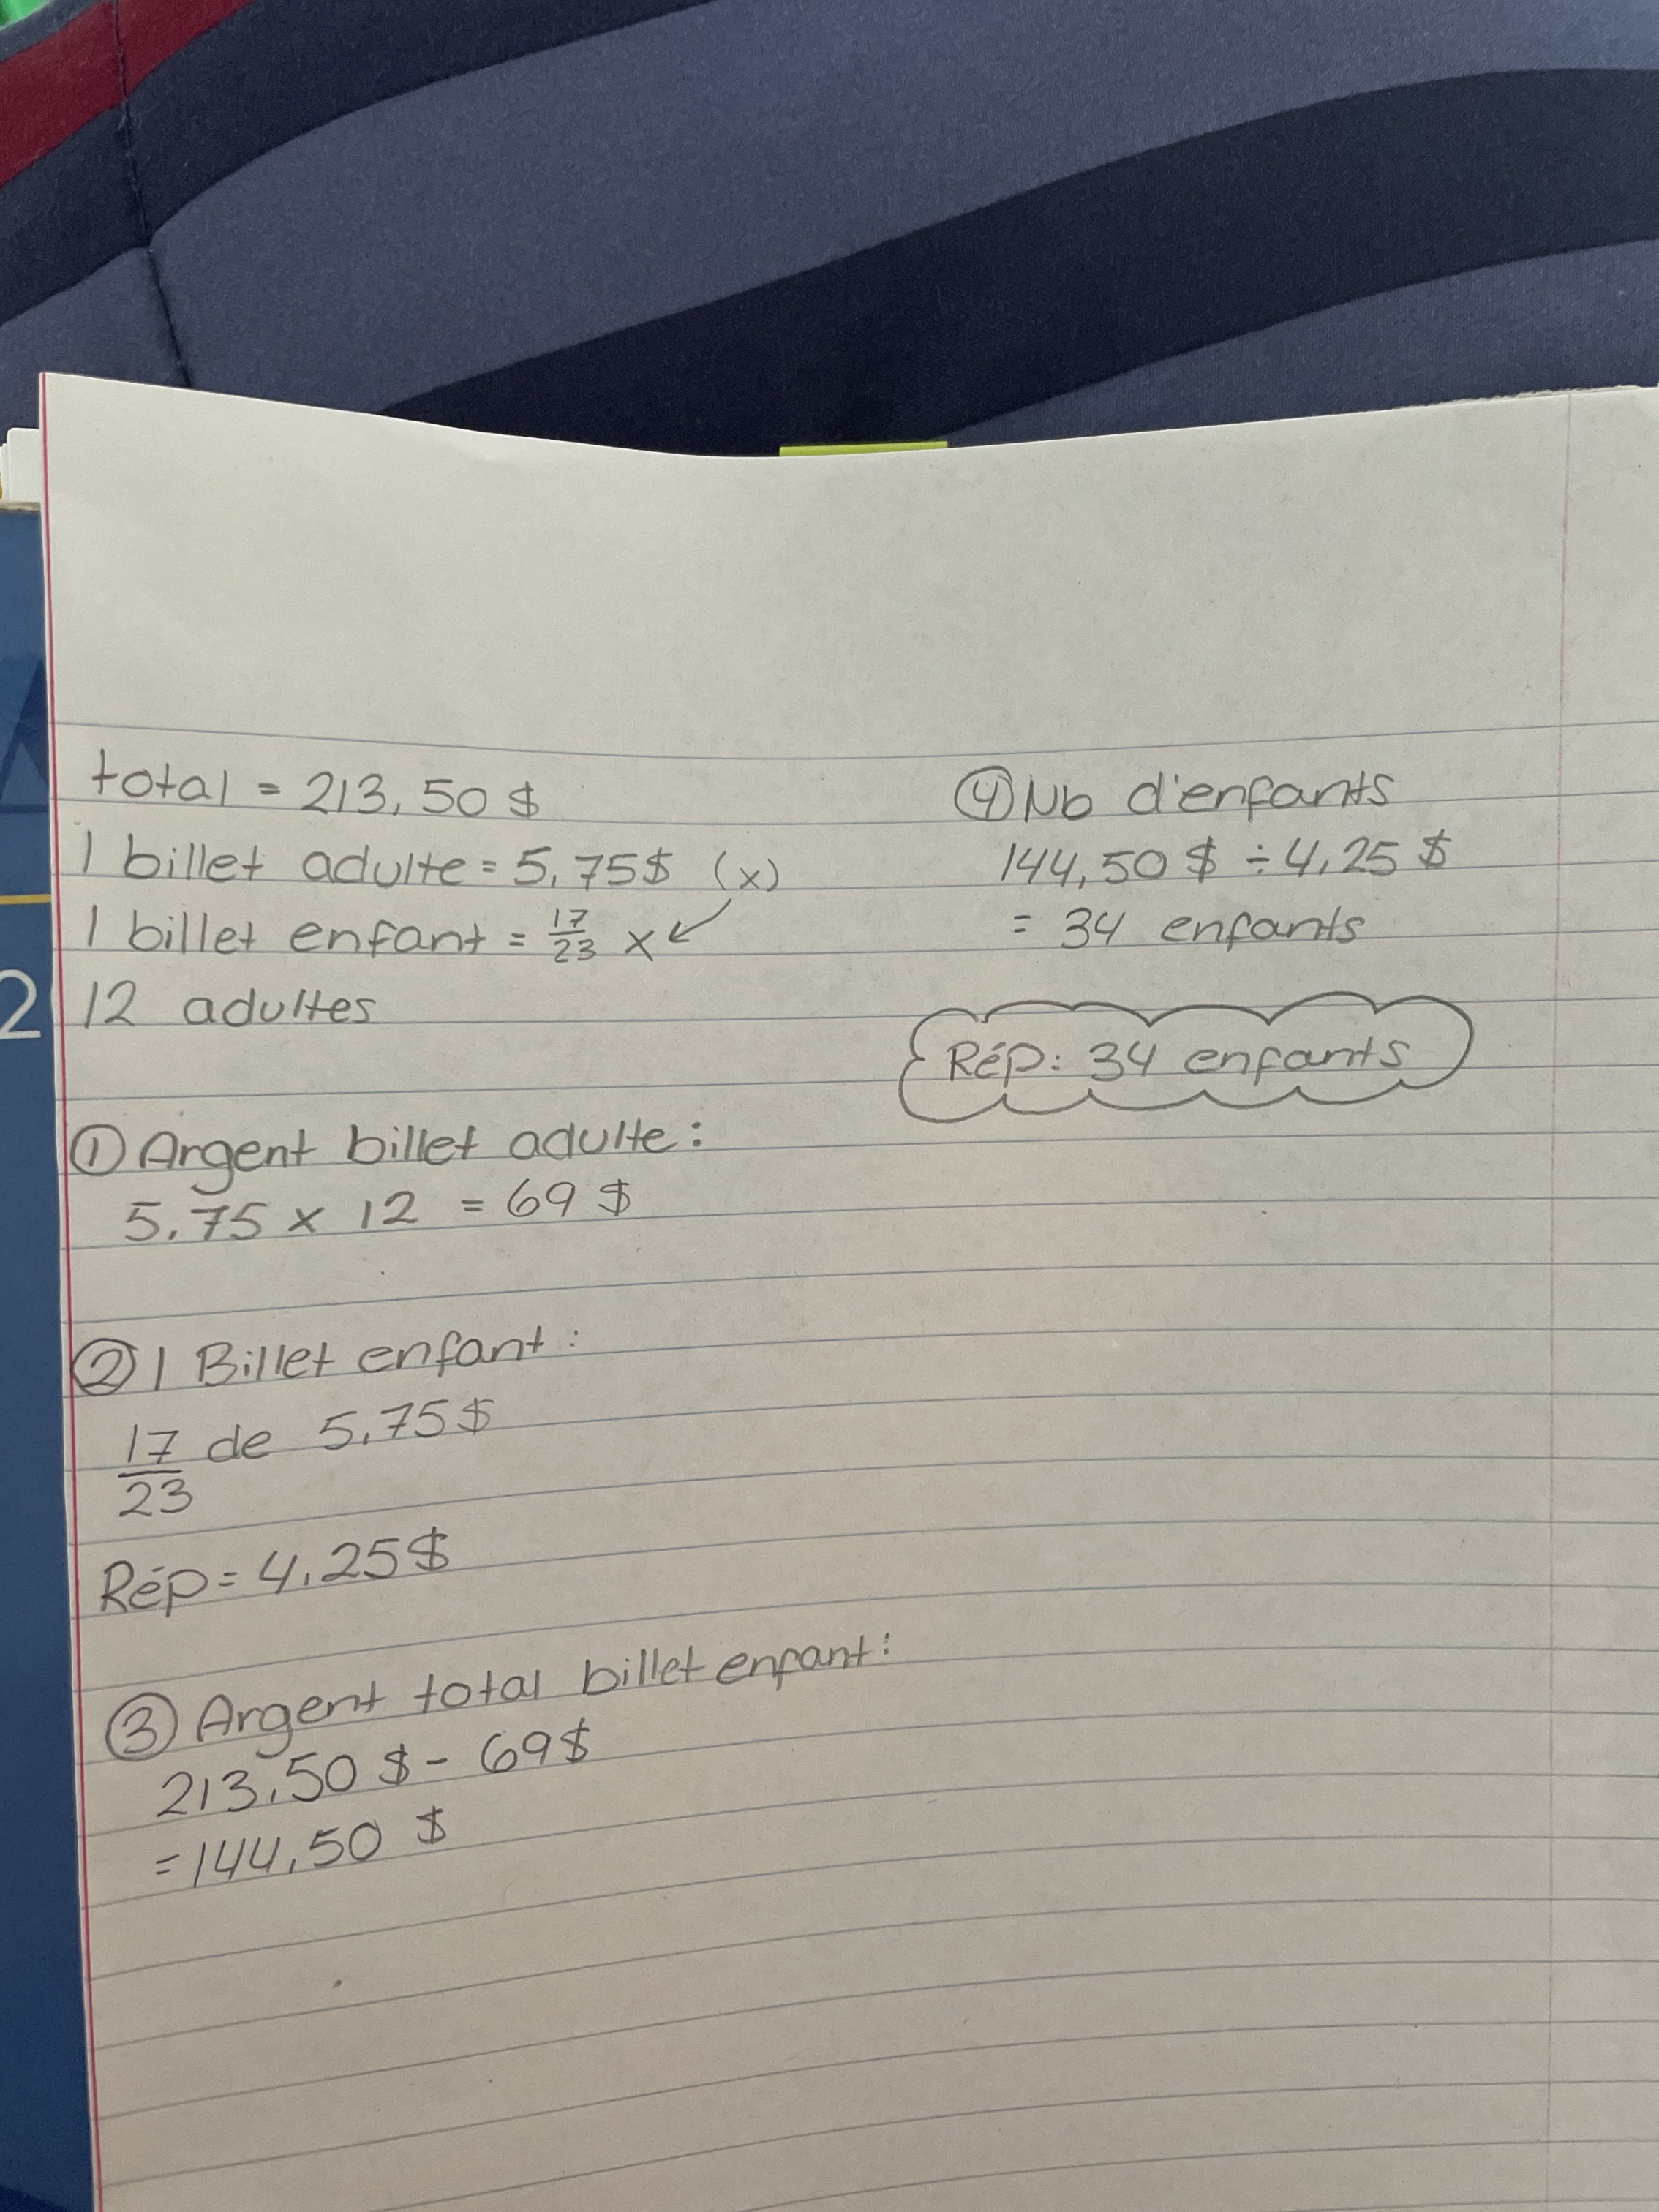 total = 213,50 $
1 billet adulte = 5,75$ (x)
1 billet enfant = 17/23 x
12 adultes
① Argent billet adulte :
5,75 x 12 = 69 $
② 1 Billet enfant :
17/23 de 5,75$
Rép = 4,25$
③ Argent total billet enfant :
213,50 $ - 69$
= 144,50 $
④ Nb d'enfants
144,50 $ ÷ 4,25 $
= 34 enfants
Rép: 34 enfants
2